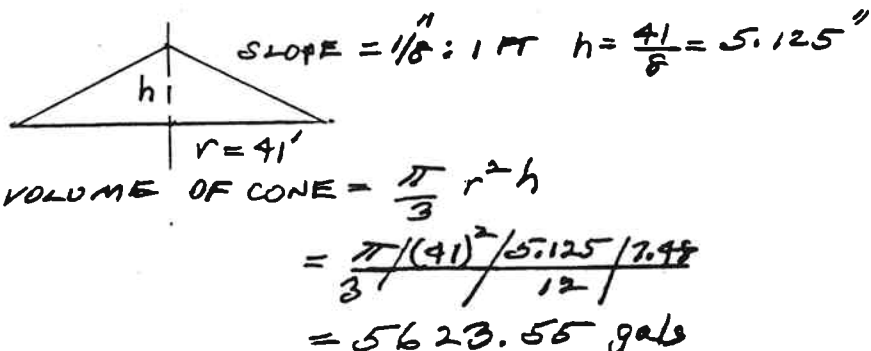 SLOPE = 1/8" : 1 FT h = 41/8 = 5.125"
h
r = 41'
VOLUME OF CONE = π/3 r² h
= π/3 / (41)² / 5.125/12 / 7.48
= 5623.55 gals